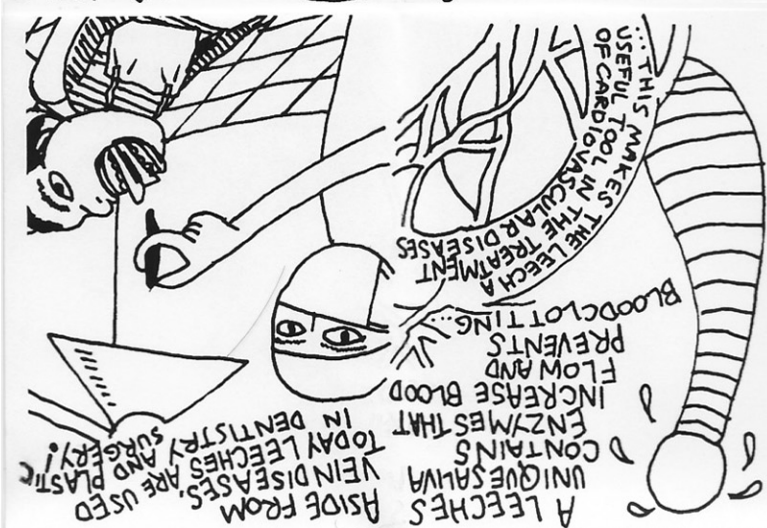 A LEECHES
UNIQUE SALIVA
CONTAINS
ENZYMES THAT
INCREASE BLOOD
FLOW AND
PREVENTS
BLOODCLOTTING...
...THIS MAKES THE LEECH A
USEFUL TOOL IN THE TREATMENT
OF CARDIOVASCULAR DISEASES
ASIDE FROM
VEIN DISEASES,
TODAY LEECHES ARE USED
IN DENTISTRY AND PLASTIC
SURGERY!